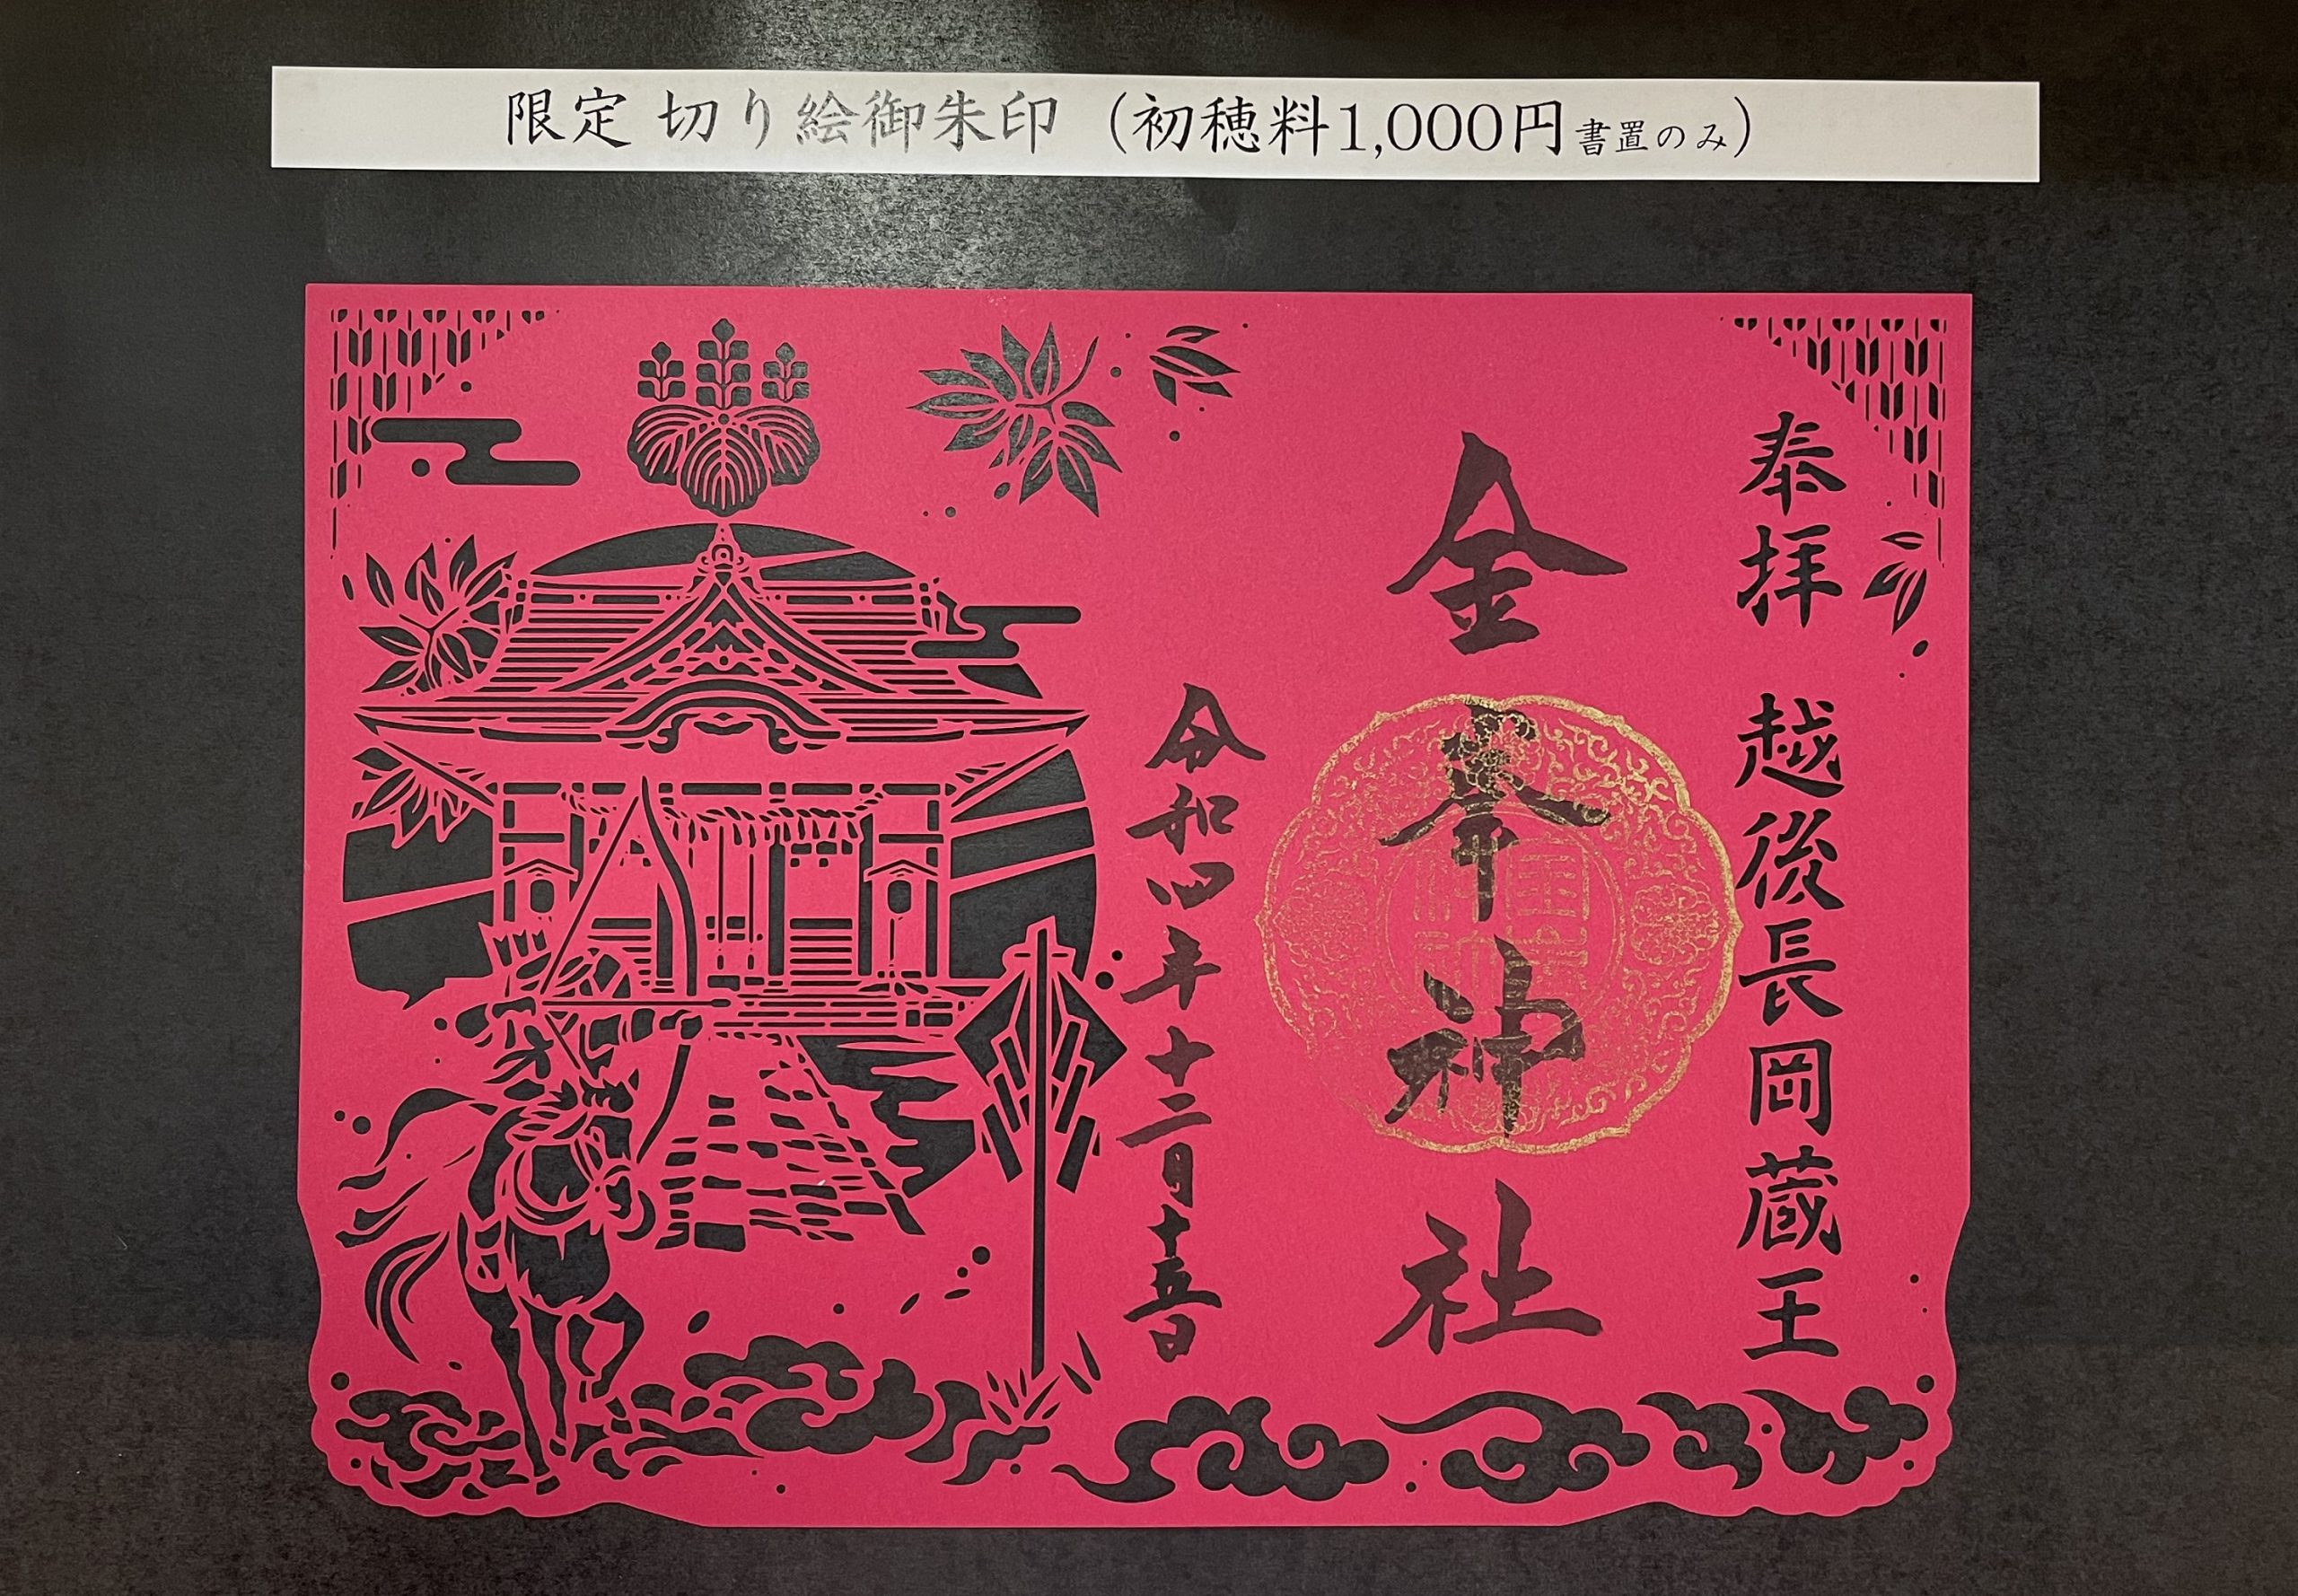 限定 切り絵御朱印（初穂料1,000円書置のみ）
奉拝 越後長岡蔵王
金峯神社
令和四年十二月十五日